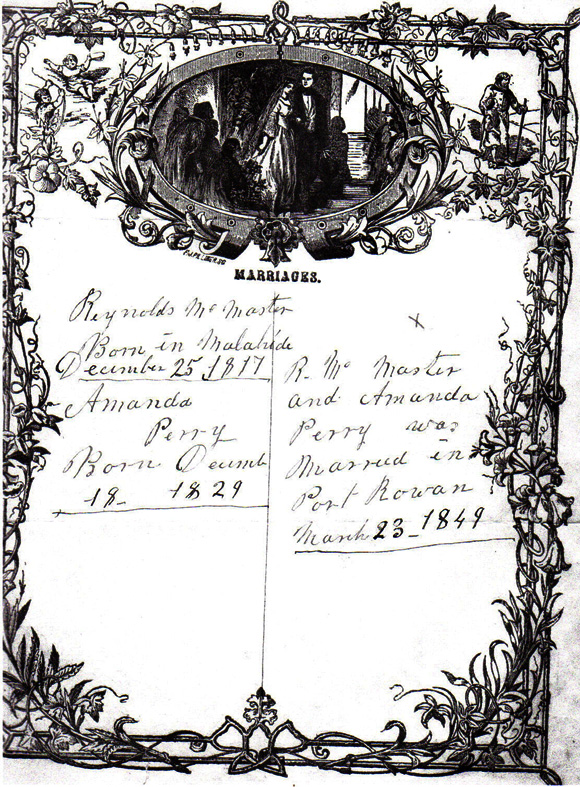 MARRIAGES.
Reynolds Mc Master
Born in Malahide
December 25, 1817
Amanda
Perry
Born Decemb
18 - 1829
R. Mc Master
and Amanda
Perry was
Married in
Port Rowan
March 23 - 1849